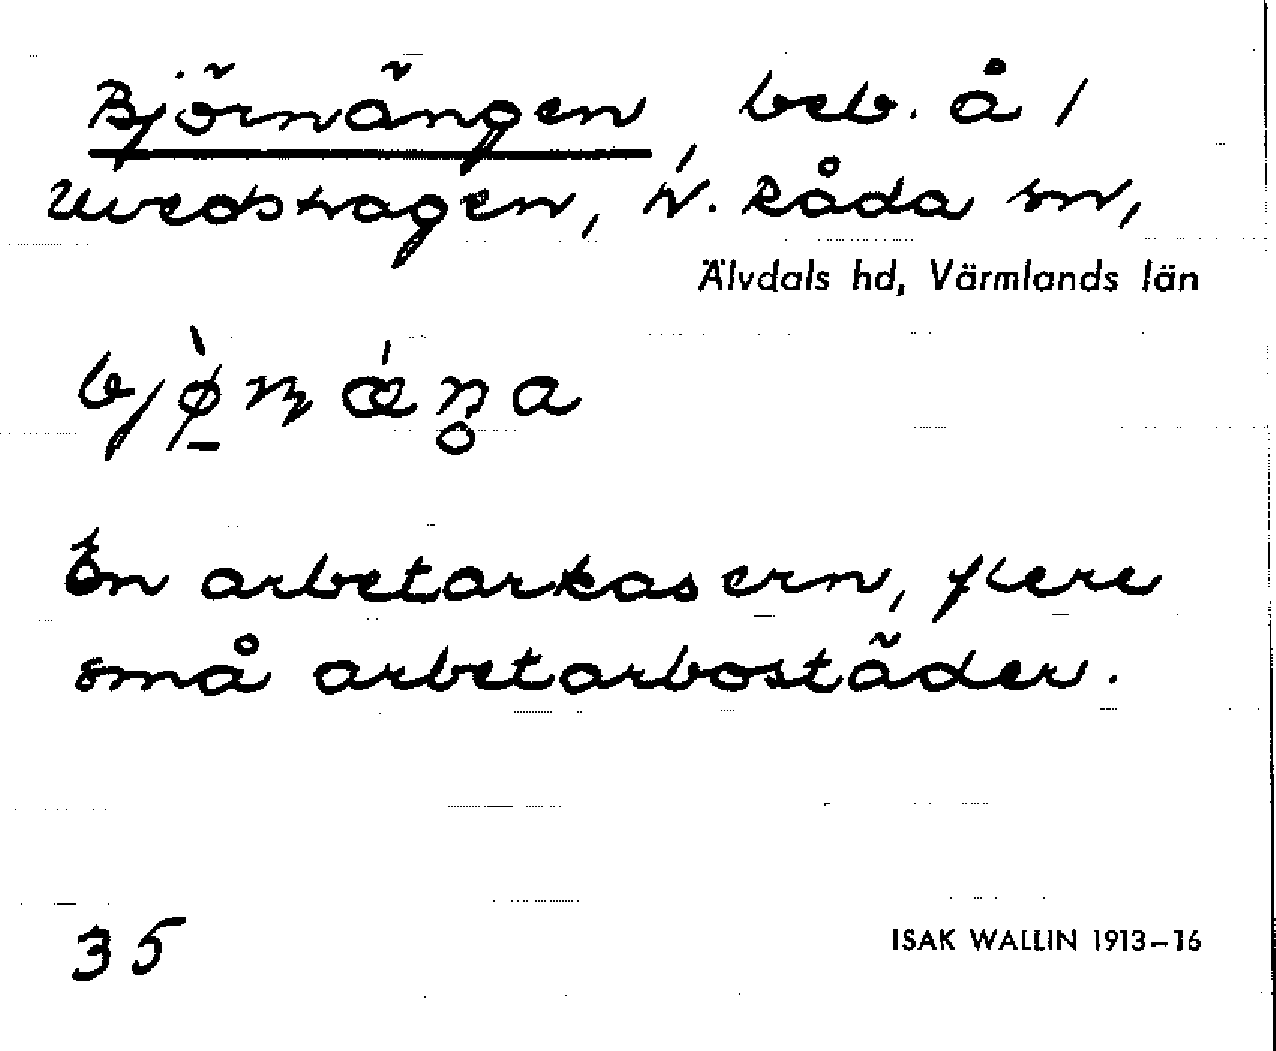 Björnängen, beb. å 1
Uvedshagen, N. Råda sn,
Älvdals hd, Värmlands län
En arbetarkasern, flere
små arbetarbostäder.
35
ISAK WALLIN 1913–16